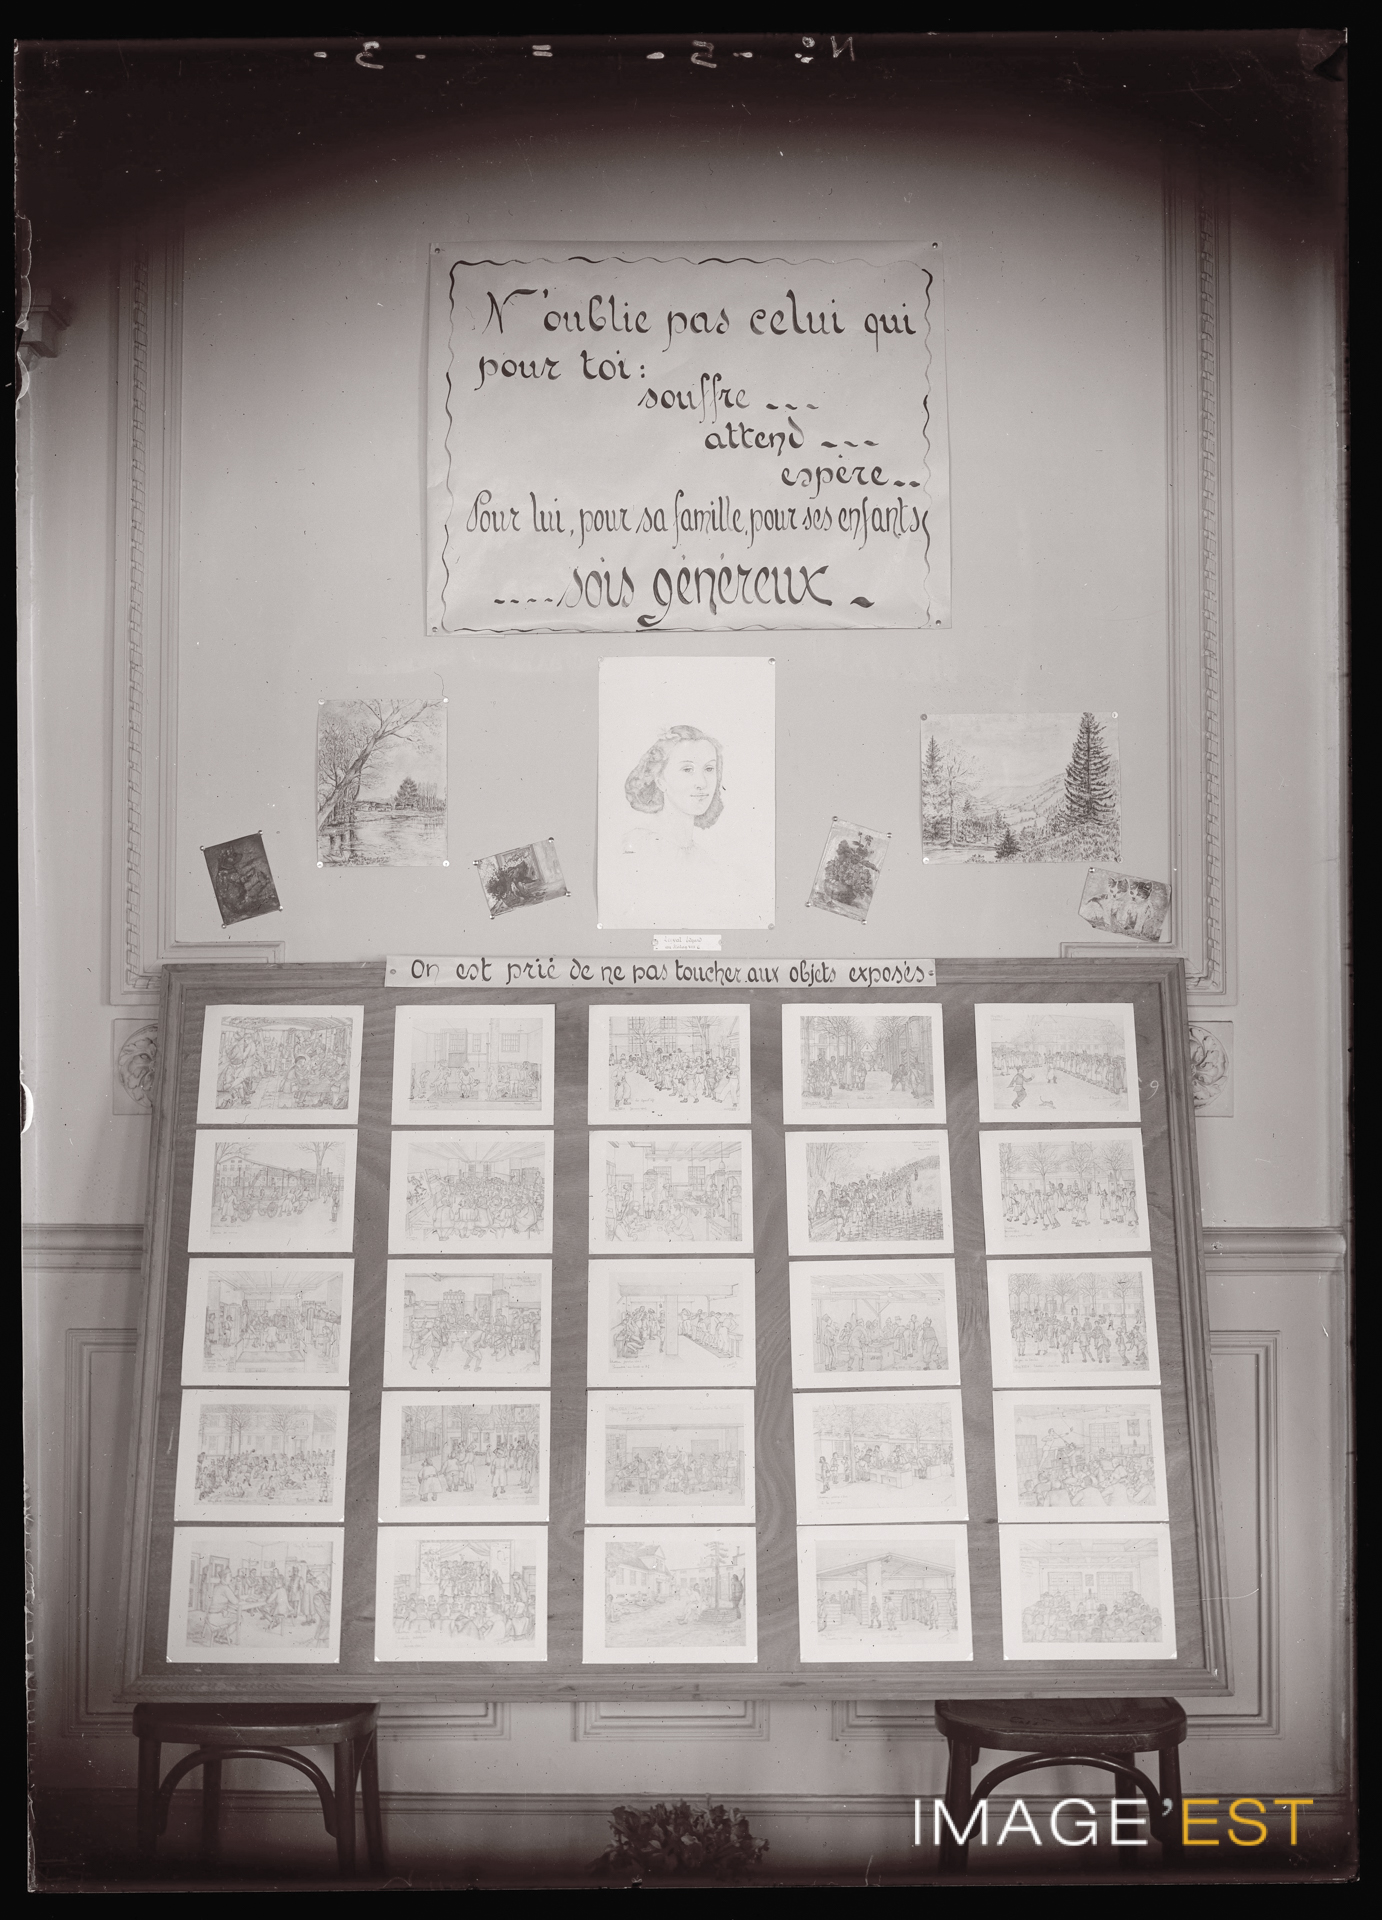 N° - 5 - = - 3 -
N'oublie pas celui qui
pour toi :
souffre ...
attend ...
espère..
Pour lui, pour sa famille, pour ses enfants
....sois généreux.
On est prié de ne pas toucher aux objets exposés.
IMAGE'EST